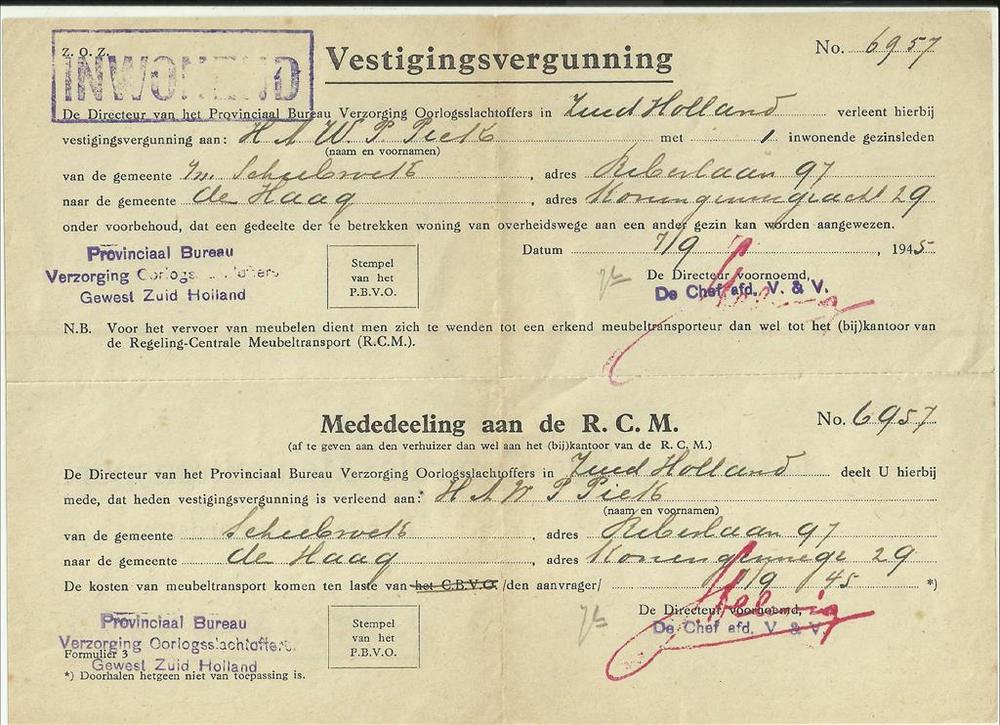 Z. O. Z.
INWONEND
Vestigingsvergunning
No. 6957
De Directeur van het Provinciaal Bureau Verzorging Oorlogsslachtoffers in Zuid Holland verleent hierbij
vestigingsvergunning aan: H A W. P. Piek met 1 inwonende gezinsleden
(naam en voornamen)
van de gemeente adres 97
naar de gemeente de Haag, adres Koninginnegracht 29
onder voorbehoud, dat een gedeelte der te betrekken woning van overheidswege aan een ander gezin kan worden aangewezen.
Datum 7/9, 1945
Provinciaal Bureau
Verzorging Oorlogsslachtoffers
Gewest Zuid Holland
Stempel
van het
P.B.V.O.
De Directeur voornoemd,
De Chef afd. V. & V.
N.B. Voor het vervoer van meubelen dient men zich te wenden tot een erkend meubeltransporteur dan wel tot het (bij)kantoor van
de Regeling-Centrale Meubeltransport (R.C.M.).
Mededeeling aan de R. C. M.
No. 6957
(af te geven aan den verhuizer dan wel aan het (bij)kantoor van de R. C. M.)
De Directeur van het Provinciaal Bureau Verzorging Oorlogsslachtoffers in Zuid Holland deelt U hierbij
mede, dat heden vestigingsvergunning is verleend aan: H A W P Piek
(naam en voornamen)
van de gemeente, adres 97
naar de gemeente de Haag, adres Koninginnegr 29
De kosten van meubeltransport komen ten laste van het C.B.V.O. /den aanvrager/ 7/9 45 *)
De Directeur voornoemd,
De Chef afd. V. & V.
Provinciaal Bureau
Verzorging Oorlogsslachtoffers
Gewest Zuid Holland
Stempel
van het
P.B.V.O.
Formulier 3
*) Doorhalen hetgeen niet van toepassing is.